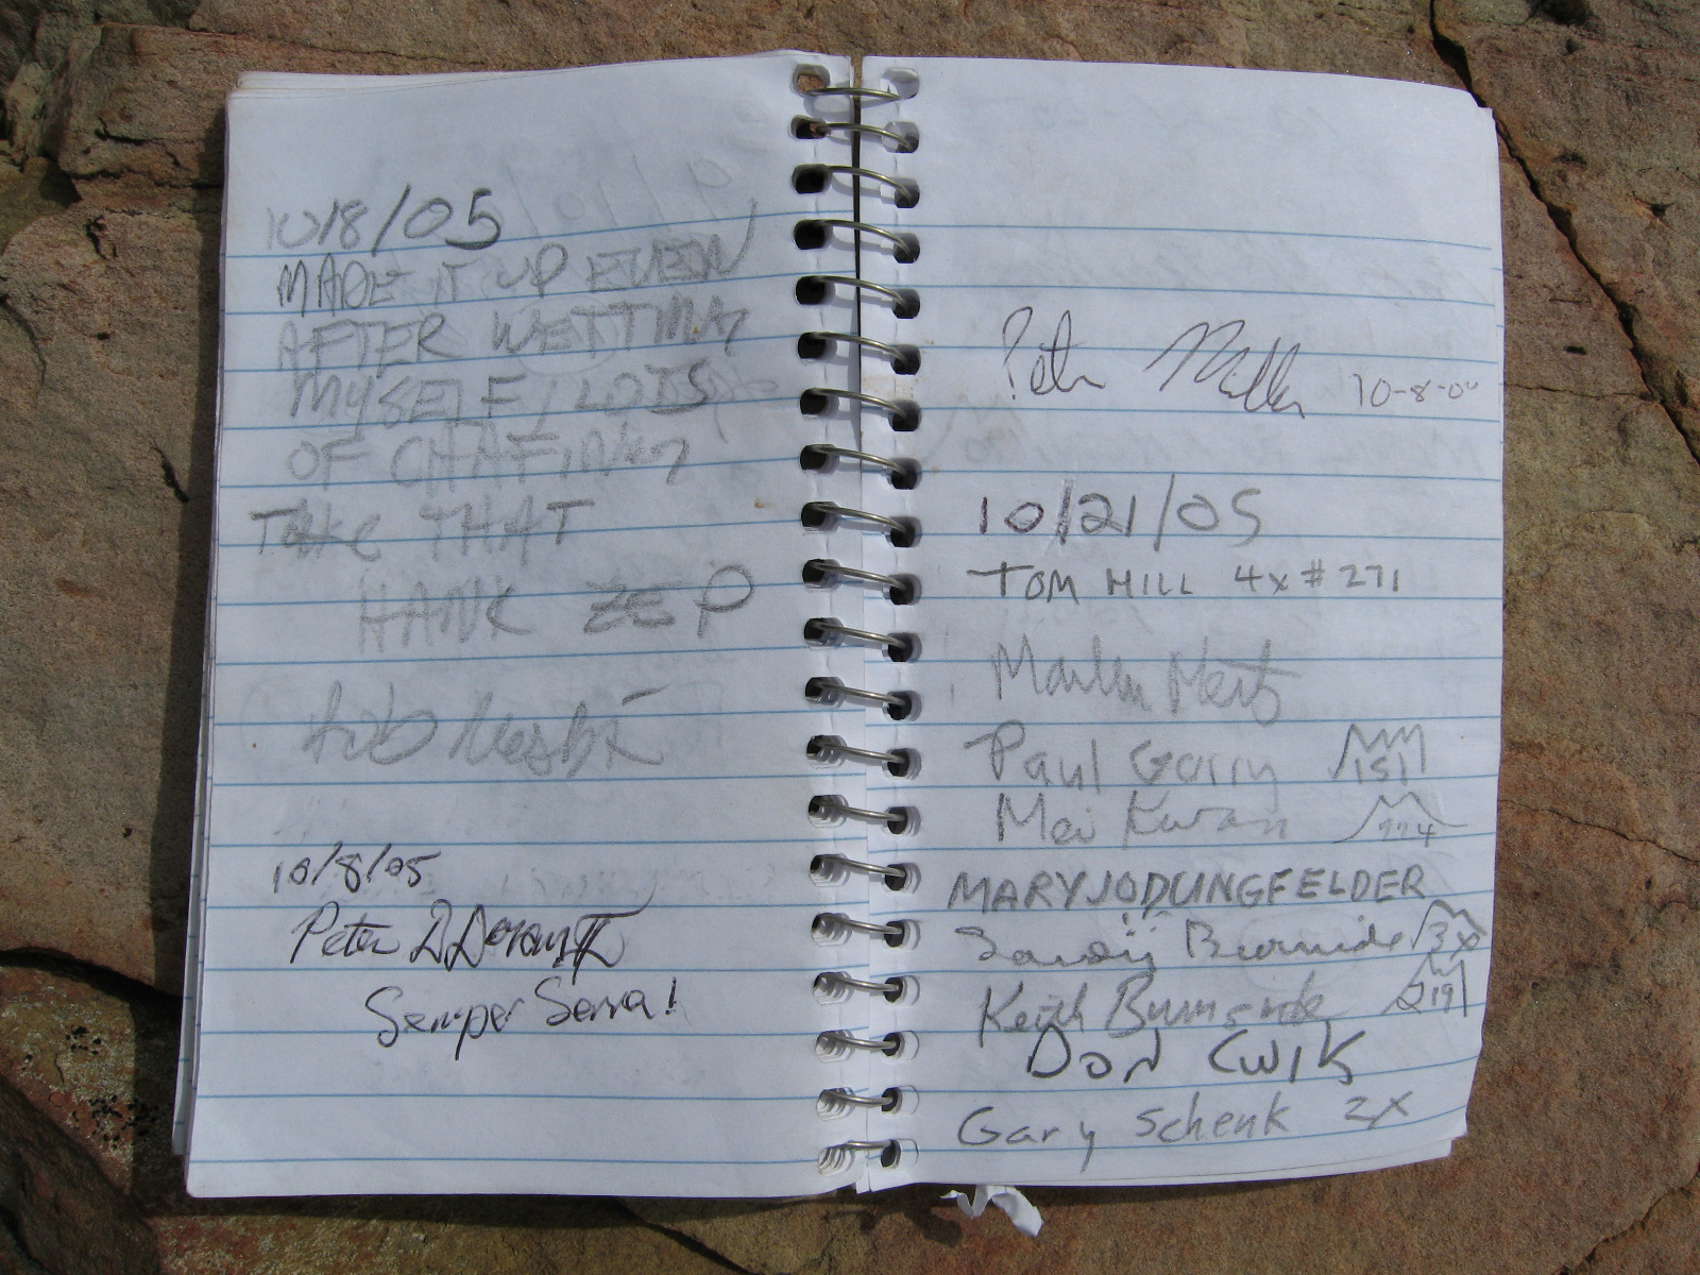 10/8/05
MADE IT UP EVEN
AFTER WETTING
MYSELF, LOTS
OF CHAFING
TAKE THAT
HANK ZEP
10/8/05
Peter D Doran II
Semper Serra!
Peter Miller 10-8-0
10/21/05
TOM HILL 4x #271
Paul Gorry 151
Mei Kwan 774
MARY JO DUNGFELDER
Sandy Burnside 3x
Keith Burnside 219
DON CWIK
Gary Schenk 2X